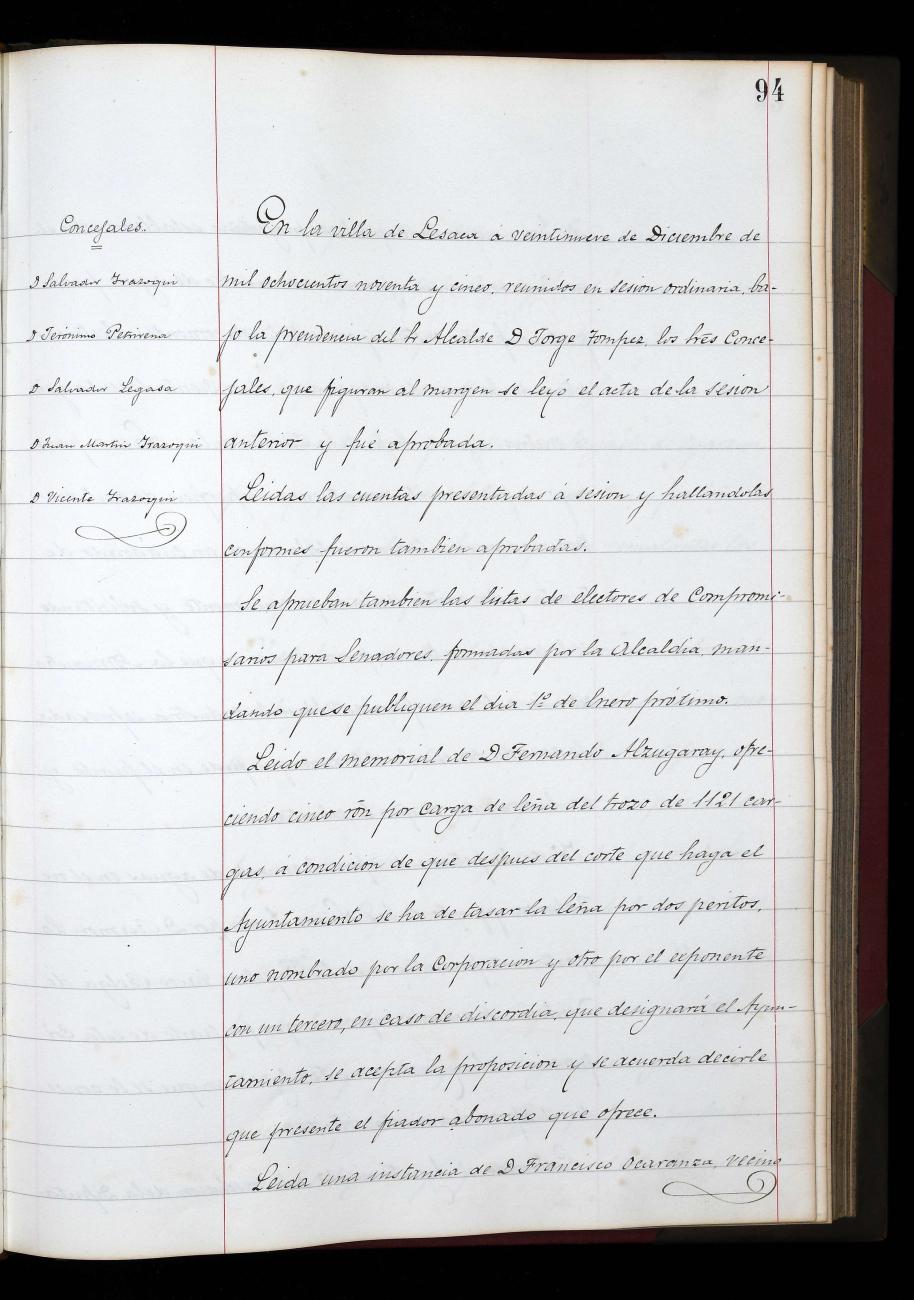 94
Concejales.
D Salvador Irazoqui
D Jerónimo Petrirena
D Salvador Legasa
D Juan Martin Irazoqui
D Vicente Irazoqui
En la villa de Lesaca a veintinueve de Diciembre de
mil ochocientos noventa y cinco, reunidos en sesion ordinaria, ba-
jo la presidencia del Sr Alcalde D Jorge Tompez, los tres Conce-
jales, que figuran al margen se leyó el acta de la sesion
anterior y fué aprobada.
Leidas las cuentas presentadas á sesion y hallandolas
conformes fueron tambien aprobadas.
Se aprueban tambien las listas de electores de Compromi-
sarios para Senadores, formadas por la Alcaldia, man-
dando que se publiquen el dia 1º de Enero próximo.
Leido el memorial de D Fernando Alzugaray, ofre-
ciendo cinco rõn por carga de leña del trozo de 1121 car-
gas, á condicion de que despues del corte que haga el
Ayuntamiento se ha de tasar la leña por dos peritos,
uno nombrado por la Corporacion y otro por el exponente
con un tercero, en caso de discordia, que designará el Ayun-
tamiento, se acepta la proposicion y se acuerda decirle
que presente el fiador abonado que ofrece.
Leida una instancia de D Francisco Ocaranza, vecino